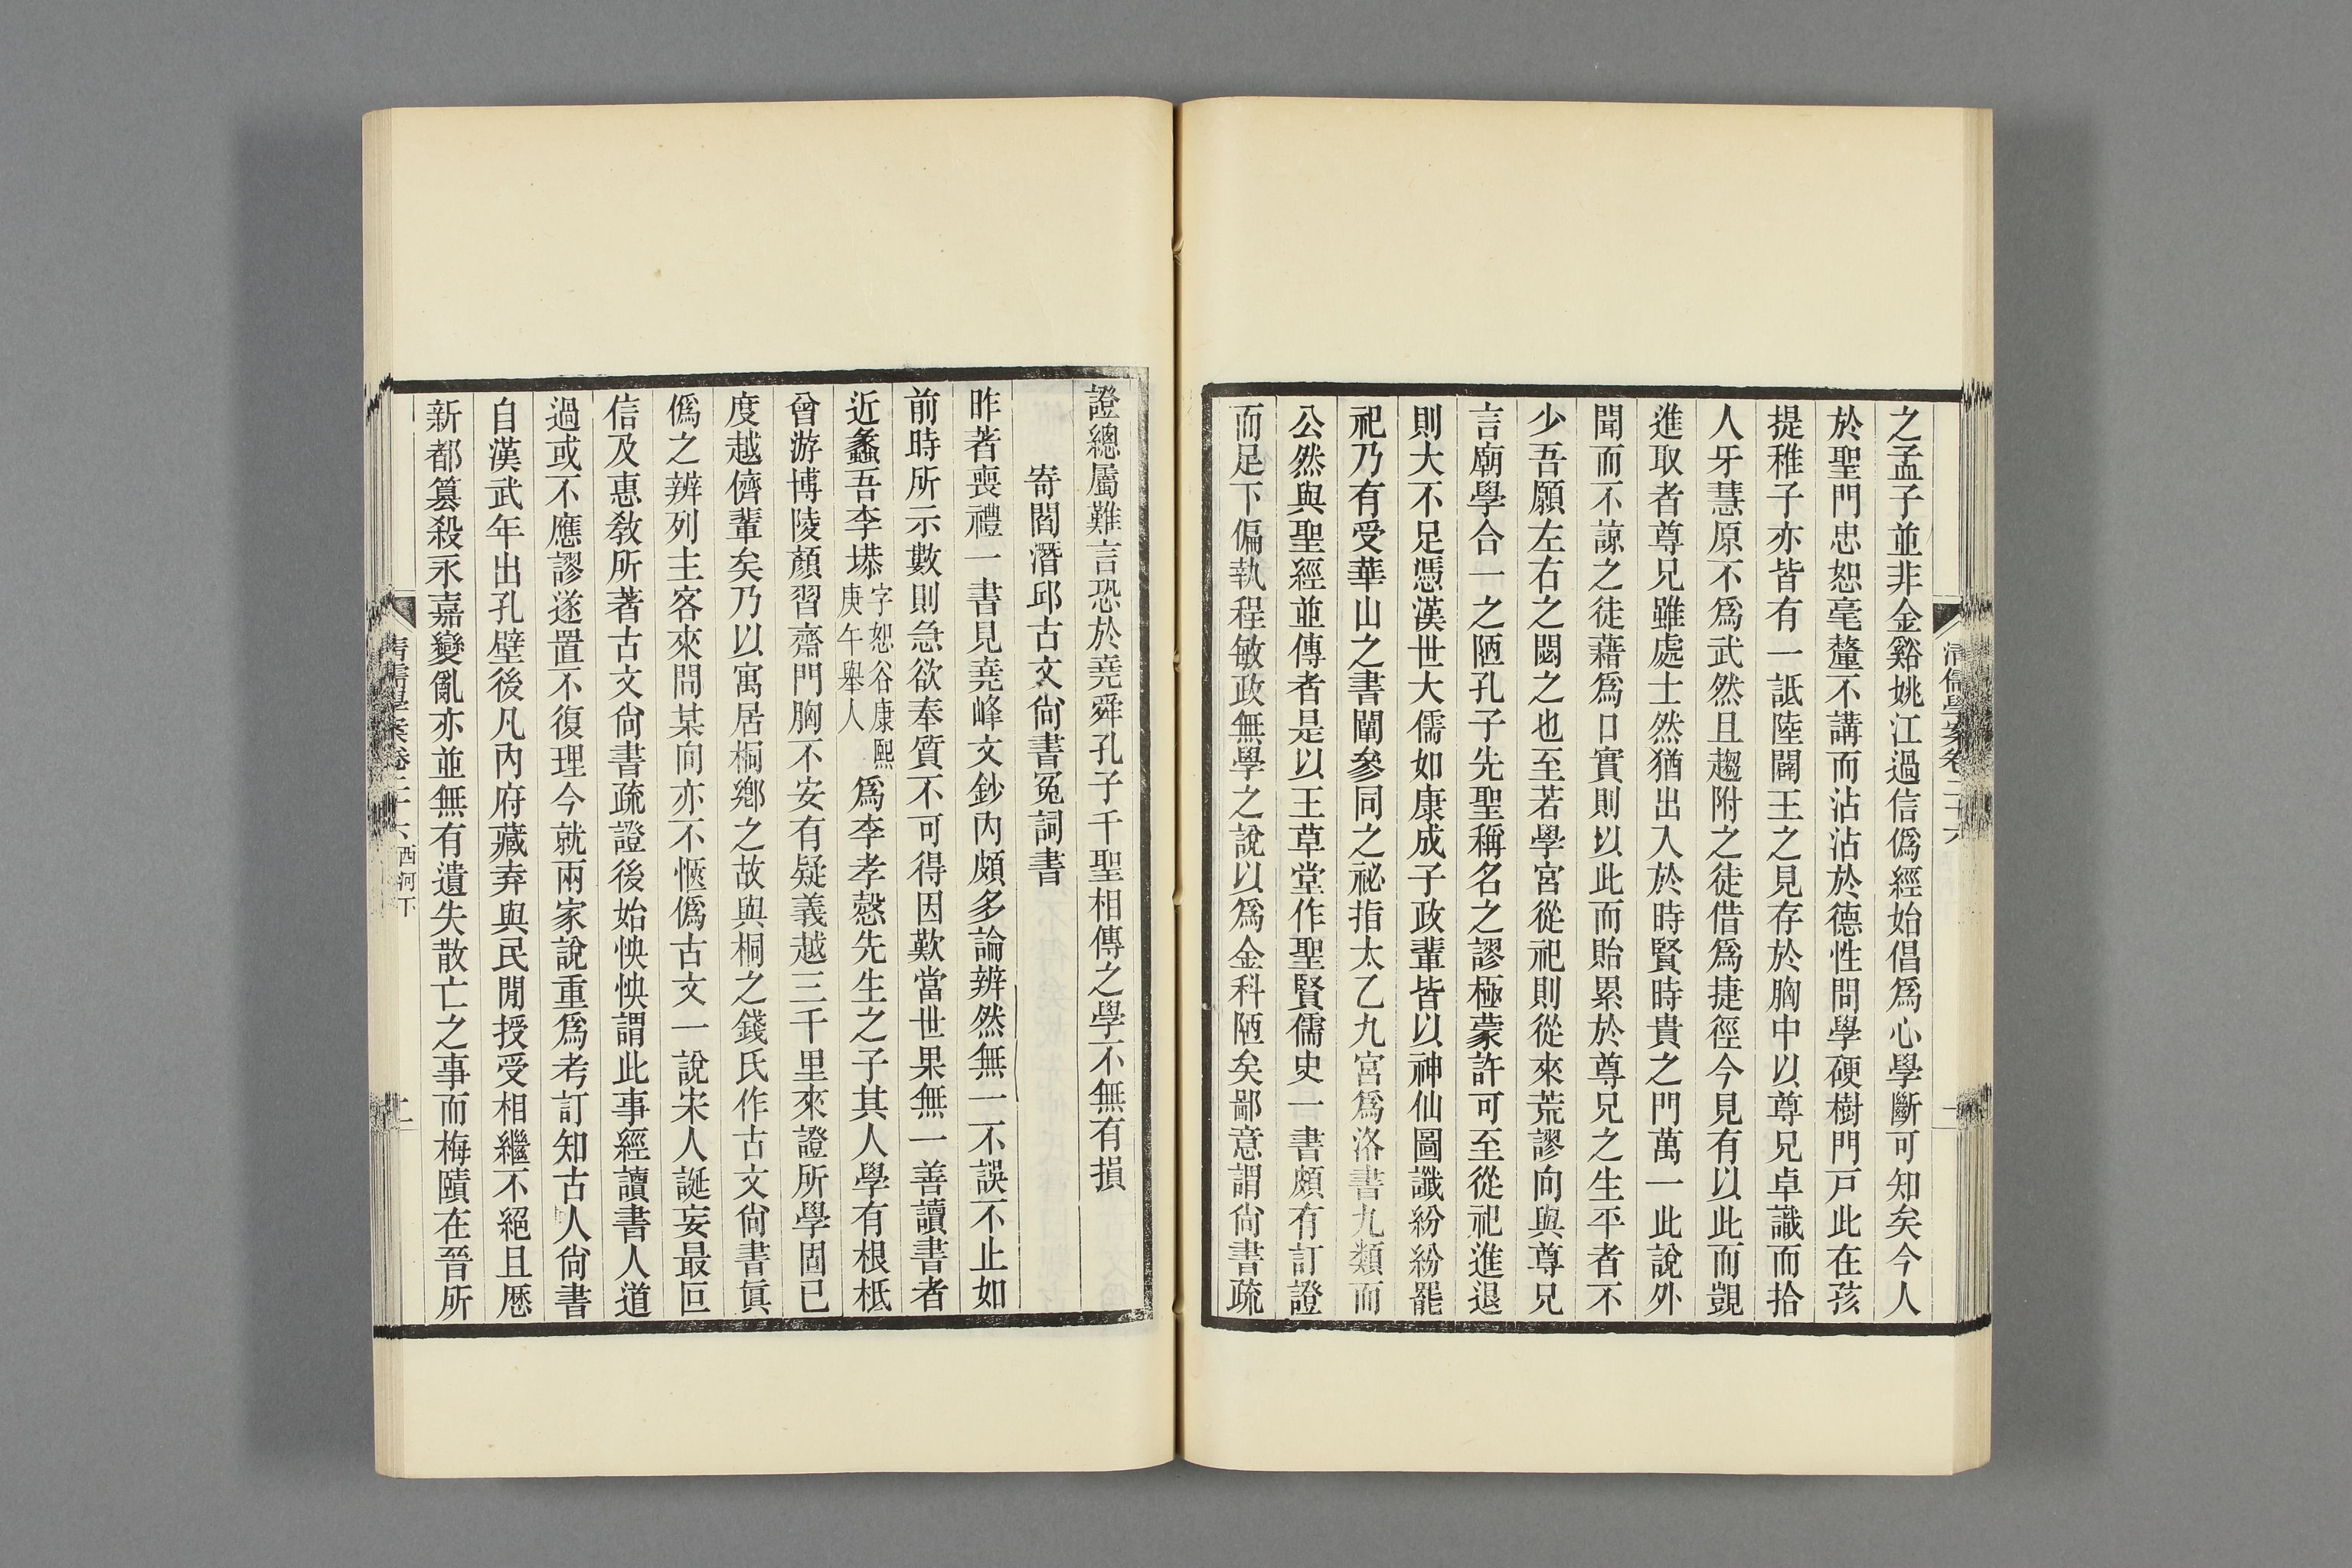 之孟子並非金谿姚江過信僞經始倡爲心學斷可知矣今人
於聖門忠恕毫釐不講而沾沾於德性問學硬樹門戸此在孩
提稚子亦皆有一詆陸闢王之見存於胸中以尊兄卓識而拾
人牙慧原不爲武然且趨附之徒借爲捷徑今見有以此而覬
進取者尊兄雖處士然猶出入於時賢時貴之門萬一此說外
聞而不諒之徒藉爲口實則以此而貽累於尊兄之生平者不
少吾願左右之閟之也至若學宮從祀則從來荒謬向與尊兄
言廟學合一之陋孔子先聖稱名之謬極蒙許可至從祀進退
則大不足憑漢世大儒如康成子政輩皆以神仙圖讖紛紛罷
祀乃有受華山之書闡參同之祕指太乙九宮爲洛書九類而
公然與聖經並傳者是以王草堂作聖賢儒史一書頗有訂證
而足下偏執程敏政無學之說以爲金科陋矣鄙意謂尙書疏
清儒學案卷二十六
證總屬難言恐於堯舜孔子千聖相傳之學不無有損
寄閻潛邱古文尙書冤詞書
昨著喪禮一書見堯峰文鈔內頗多論辨然無一不誤不止如
前時所示數則急欲奉質不可得因歎當世果無一善讀書者
近蠡吾李塨字恕谷康熙庚午舉人爲李孝慤先生之子其人學有根柢
曾游博陵顏習齋門胸不安有疑義越三千里來證所學固已
度越儕輩矣乃以寓居桐鄉之故與桐之錢氏作古文尙書眞
僞之辨列主客來問某向亦不愜僞古文一說宋人誕妄最叵
信及惠敎所著古文尙書疏證後始怏怏謂此事經讀書人道
過或不應謬遂置不復理今就兩家說重爲考訂知古人尙書
自漢武年出孔壁後凡內府藏弆與民閒授受相繼不絕且歷
新都篡殺永嘉變亂亦並無有遺失散亡之事而梅賾在晉所
清儒學案卷二十六 西河下
二